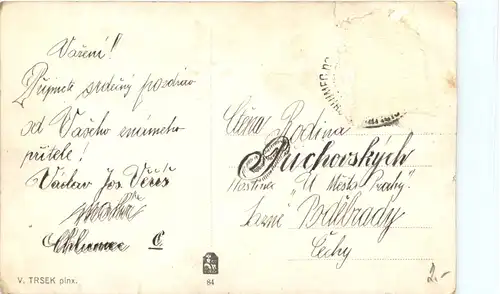 Vážení!
Přijměte srdečný pozdrav
od Vašeho známeho
přítele!
Václav Jos. Vereš
Chlumec C
Ctěná Rodina
Puchovských
Hostinec "U Města Prahy".
Lázně Poděbrady
Čechy
2.-
V. TRSEK pinx.
84